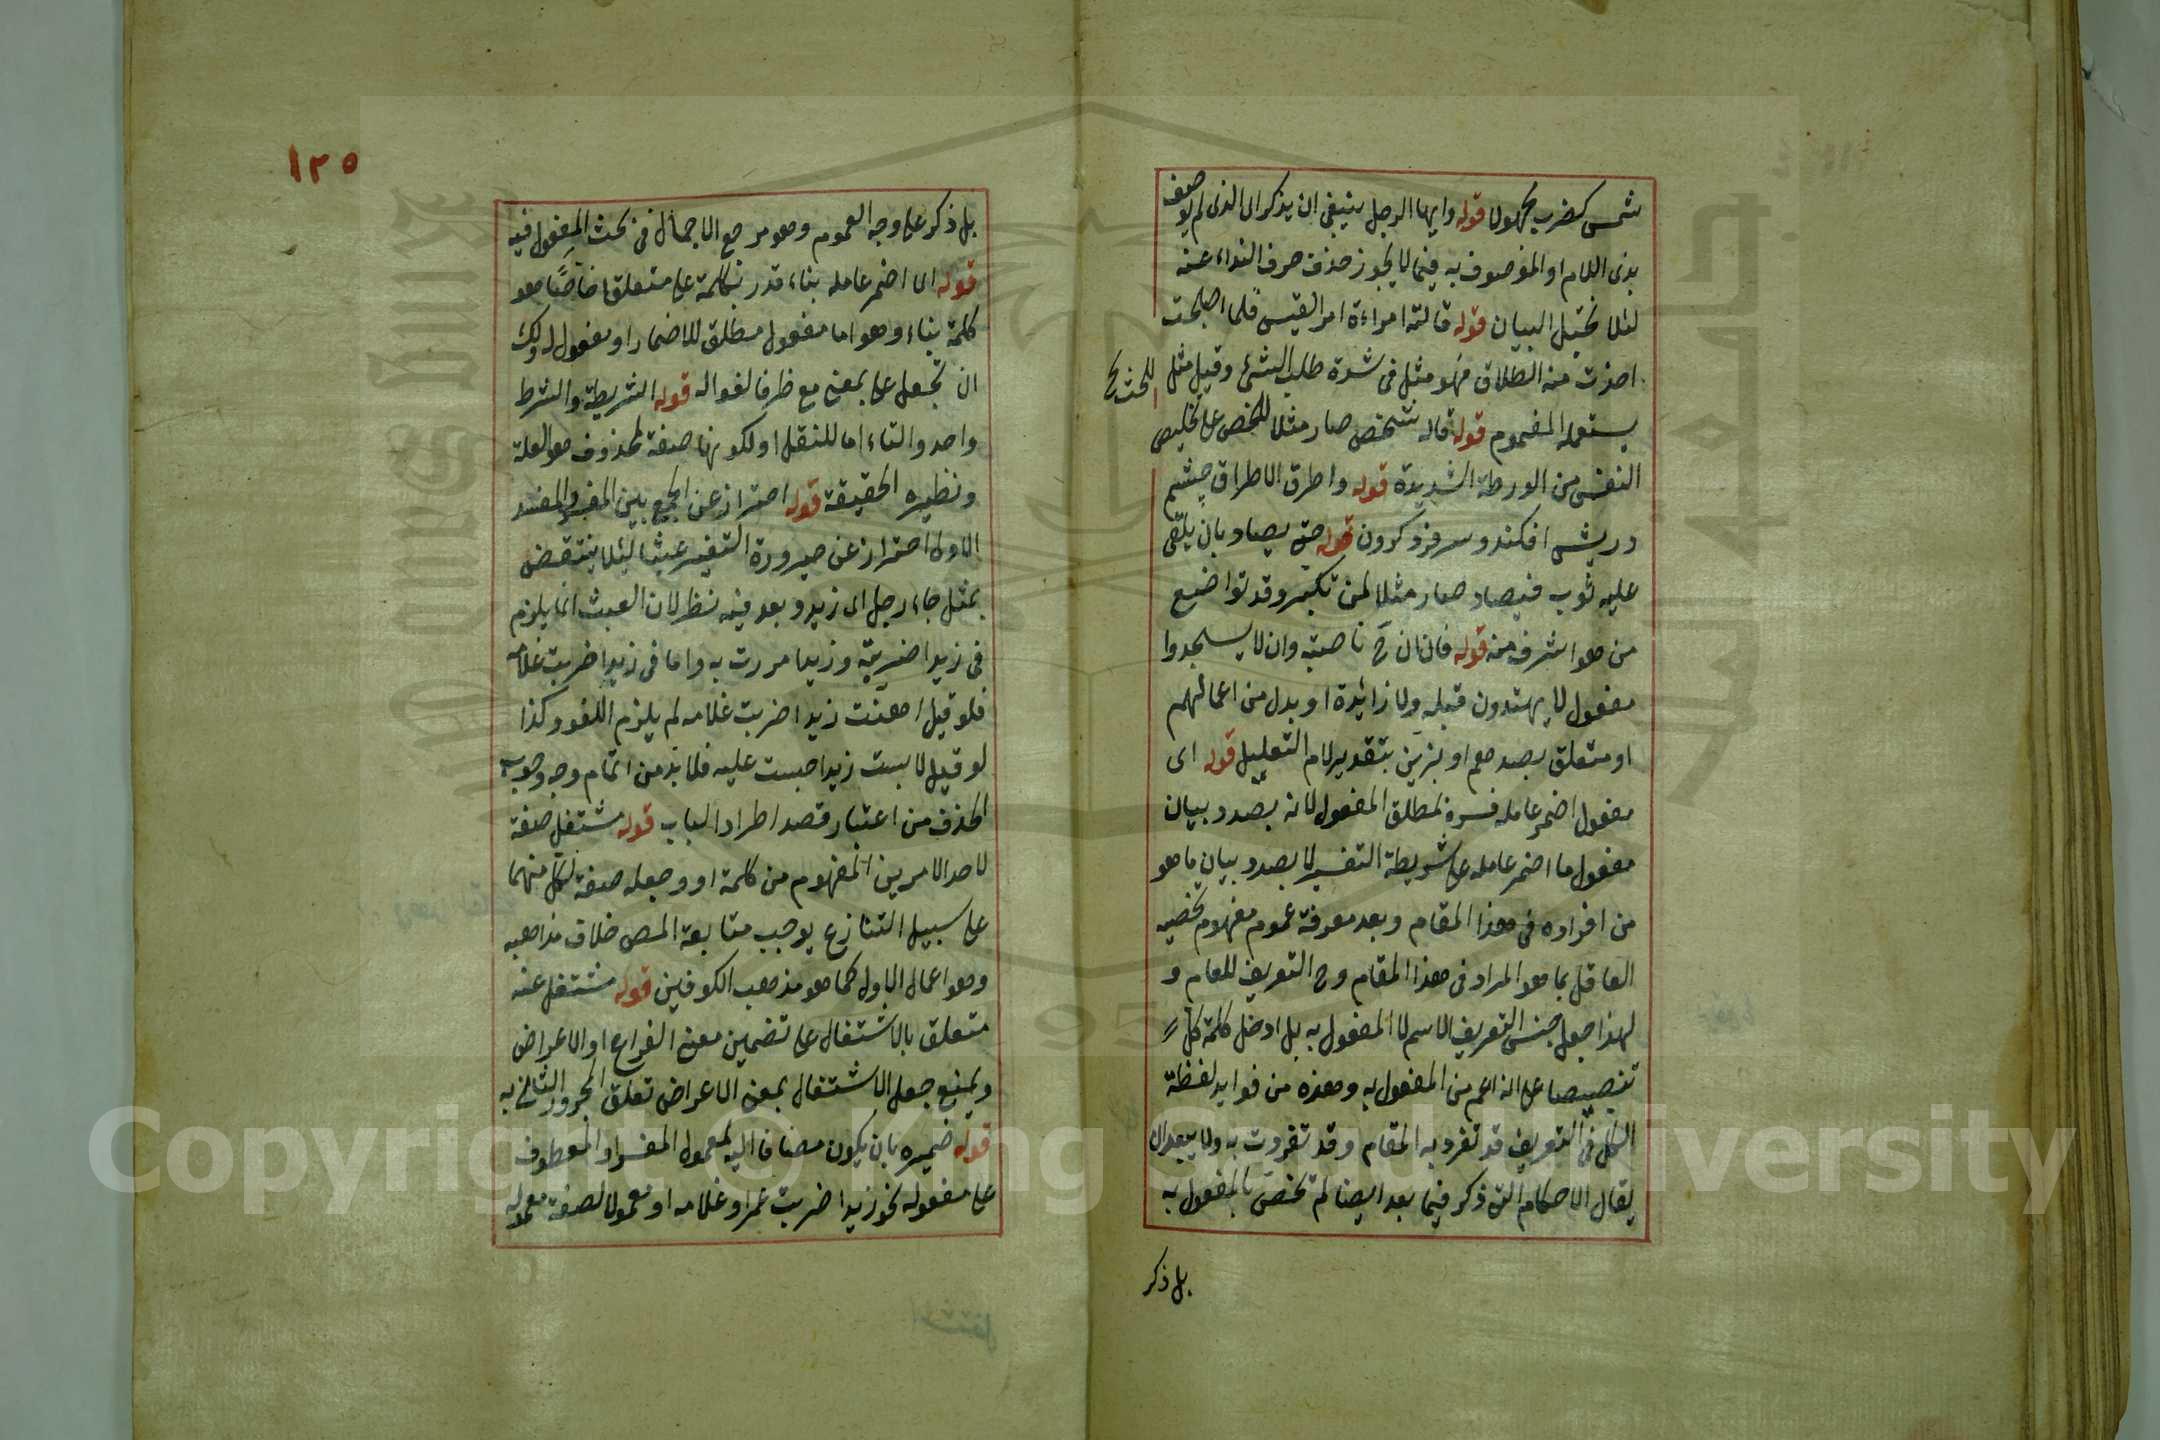 شمس كضرب مجهولا قوله وايها الرجل ينبغى ان يذكر اى الذى لم يوصف
بذى اللام او الموصوف به فيما لا يجوز حذف حرف النداء عنه
لئلا يختل البيان قوله قالته امراءة امرالقيس فلما اصبحت
اخذت منه الطلاق فهو مثل فى شدة طلب الشئ وقيل مثل
للحث
يستعمله المغموم قوله قاله شخص صار مثلا للخص على تخليص
النفس من الورطة الشديدة قوله واطرق الاطراق چشم
در پيش افكندن وسر فرو كردن قوله حتى يصاد بان يلقى
عليه ثوب فيصاد صار مثلا لمن تكبر وقد تواضع
من هو اشرف منه قوله فان ان ح ناصبة وان لا يسجدوا
مفعول لا يهتدون قبله ولا زائدة او بدل من اعمالهم
او متعلق بصدهم او بزين بتقدير لام التعليل قوله اى
مفعول اضمر عامله فسره بمطلق المفعول لانه بصدد بيان
مفعول ما اضمر عامله على شريطة التفسير لا بصدد بيان ما هو
من افراده فى هذا المقام وبعد معرفة عموم مفهوم يخصيه
العاقل بما هو المراد فى هذا المقام وح التعريف للعام و
لهذا جعل جنس التعريف الاسم لا المفعول به بل ادخل كلمة كل
تنصيصا على انه اعم من المفعول به وهذه من فوايد لفظة
الكل فى التعريف قد تفرد به المقام وقد تفردت به ولا يبعد ان
يقال الاحكام التى ذكر فيما بعد ايضا لم تختص بالمفعول به
بل ذكر
١٢٥
بل ذكر على وجه العموم وهو مرجع الاجمال فى بحث المفعول فيه
قوله اى اضمر عامله بناء قدر بكلمة على متعلقا خاصا هو
كلمة بناء وهو اما مفعول مطلق للاضمار او مفعول له ولك
ان تجعل على بمعنى مع ظرفا لغوا له قوله الشريطة والشرط
واحد والتاء اما للنقل او لكونها صفة لمحذوف هو العلة
ونظيره الحقيقة قوله احترازا عن الجمع بين المفسر والمفسر
الاولى احترازا عن صيرورة التفسير عبثا لئلا ينتقض
بمثل جاء رجل اى زيد وبعد فيه نظر لان العبث انما يلزم
فى زيدا ضربته وزيدا مررت به واما فى زيدا ضربت غلامه
فلو قيل اهنت زيدا ضربت غلامه لم يلزم اللغو وكذا
لو قيل لابست زيدا حبست عليه فلا بد من اتمام وجه وجوب
الحذف من اعتبار قصد اطراد الباب قوله مشتغل صفة
لاحد الامرين المفهوم من كلمة او وجعله صفة لكل منهما
على سبيل التنازع يوجب متابعة المص خلاف مذهبه
وهو اعمال الاول كما هو مذهب الكوفيين قوله مشتغل عنه
متعلق بالاشتغال على تضمين معنى الفراع او الاعراض
ويمنع جعل الاشتغال بمعنى الاعراض تعلق المجرور الثانى به
قوله ضميره بان يكون مضافا اليه لمعمول المفسر او المعطوف
على مفعوله نحو زيدا ضربت عمرا وغلامه او معمولا لصفة معموله